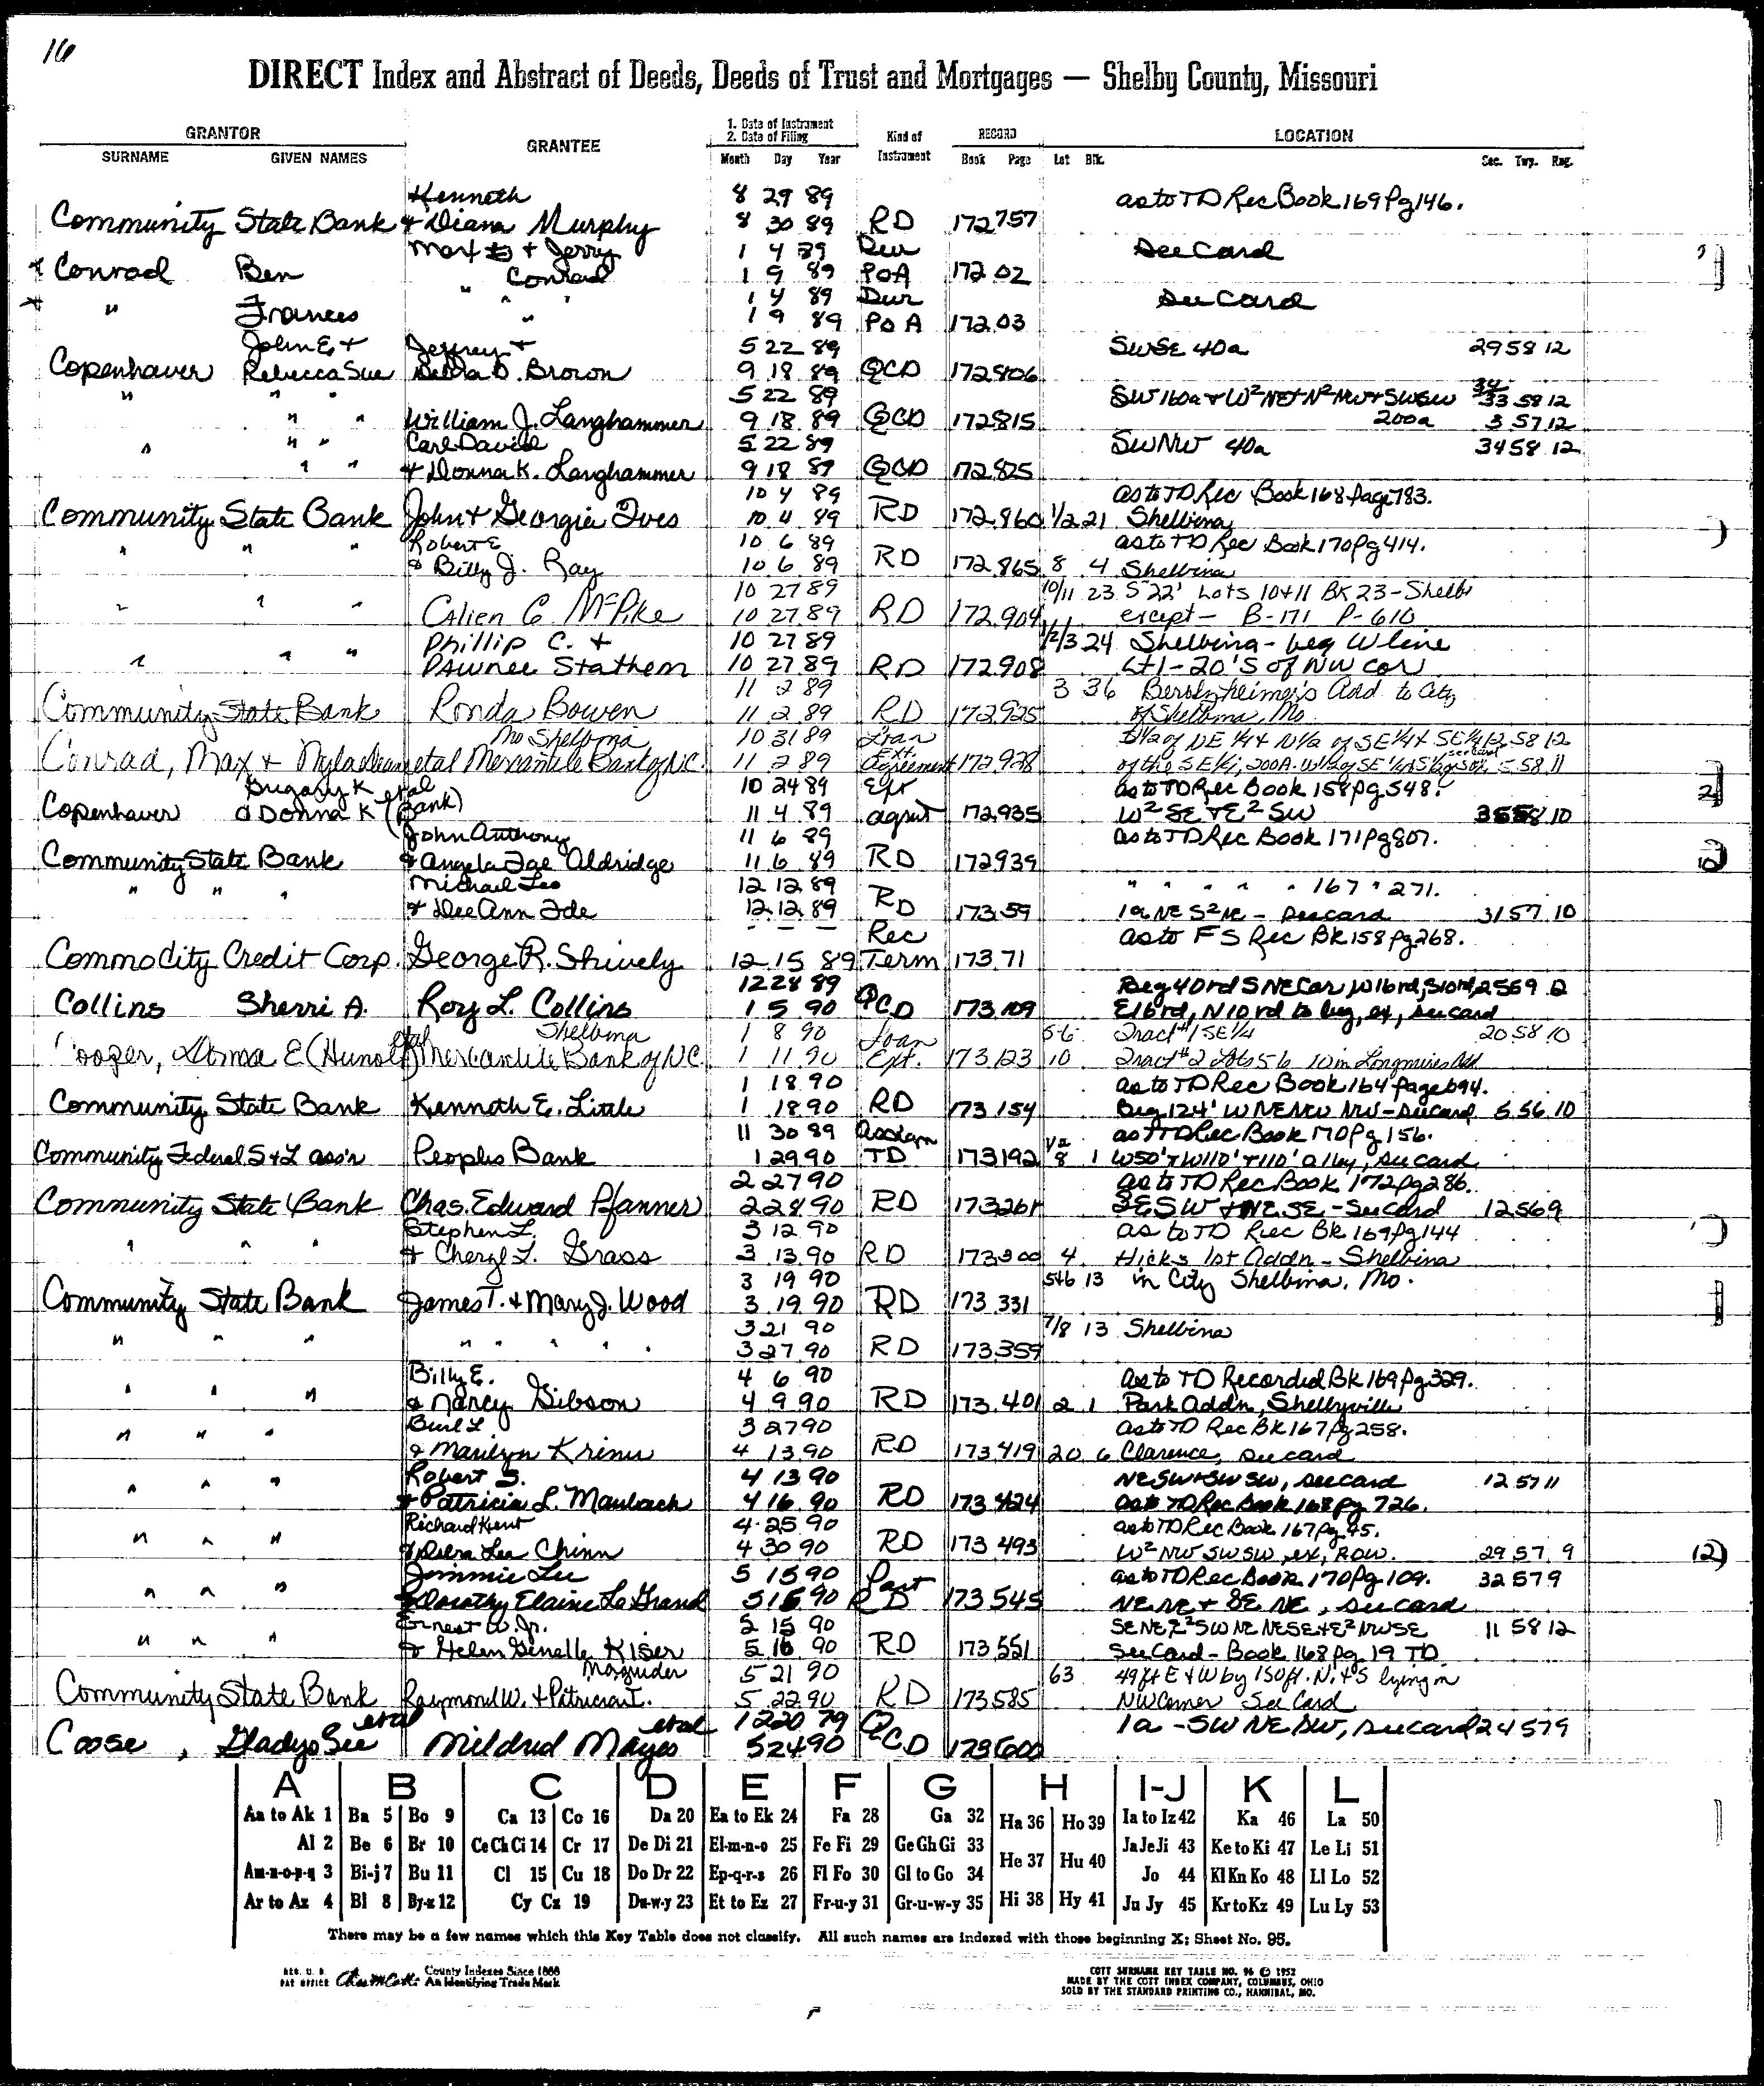 16
DIRECT Index and Abstract of Deeds, Deeds of Trust and Mortgages — Shelby County, Missouri
GRANTOR GRANTEE 1. Date of Instrument 2. Date of Filing Kind of Instrument RECORD LOCATION
SURNAME GIVEN NAMES Month Day Year Book Page Lot Blk. Sec. Twp. Rng.
Kenneth 8 29 89 as to TD Rec Book 169 Pg 146.
Community State Bank & Diana Murphy 8 30 89 RD 172 757
Max & Jerry 1 4 89 Dur See Card
Conrad Ben " Conrad 1 9 89 PoA 172 02
1 4 89 Dur See Card
" Frances " 1 9 89 PoA 172 03
John E & Jeffrey & 5 22 89 SWSE 40a 29 58 12
Copenhaver Rebecca Sue Debra D. Brown 9 18 89 QCD 172 806
" " " 5 22 89 SW 160a & W² NE & N² NW & SWSW 34 33 58 12
" " William J. Langhammer 9 18 89 QCD 172 815 200a 3 57 12
" " " Carl David 5 22 89 SWNW 40a 34 58 12
" " & Donna K. Langhammer 9 18 89 QCD 172 825
10 4 89 as to TD Rec Book 168 Page 783.
Community State Bank John & Georgia Ives 10 4 89 RD 172 860 1/2 21 Shelbina
Robert E 10 6 89 as to TD Rec Book 170 Pg 414.
" " " & Billy J. Ray 10 6 89 RD 172 865 8 4 Shelbina
10 27 89 10/11 23 S 22' Lots 10 & 11 BK 23 - Shelb
" " " C McPike 10 27 89 RD 172 904 except - B-171 P-610
Phillip C. & 10 27 89 1/2/3 24 Shelbina - beg W line
" " " Pawnee Stathem 10 27 89 RD 172 908 Lt 1 - 20'S of NW cor
11 2 89 3 36 Add to City
Community State Bank Ronda Bowen 11 2 89 RD 172 925 of Shelbina, Mo
Mo Shelbina 10 31 89 Loan E½ of NE ¼ & N½ of SE ¼ & SE ¼ 12 58 12
Conrad, Max & etal Mercantile Bank of N.C. 11 2 89 Ext. Agreement 172 928 of the SE¼, 200A. 5 58 11
K etal 10 24 89 Ext as to TD Rec Book 158 pg 548.
Copenhaver & Donna K (Bank) 11 4 89 agmt 172 935 W² SE & E² SW 35 58 10
John Anthony 11 6 89 as to TD Rec Book 171 Pg 807.
Community State Bank & Angela Fae Aldridge 11 6 89 RD 172 939
Michael Leo 12 12 89 " " " " " 167 " 271.
" " " & Dee Ann Ide 12 12 89 RD 173 59 1a NE S² NE - See card 31 57 10
- - - Rec as to F S Rec Bk 158 Pg 268.
Commodity Credit Corp. George R. Shively 12 15 89 Term 173 71
12 28 89 Beg 40rd S NE Cor, W 16rd, S10rd, 2 56 9
Collins Sherri A. Rory L. Collins 1 5 90 QCD 173 109 E16rd, N10rd to beg, ex, see card
etal Shelbina 1 8 90 Loan 5-6 Tract #1 SE¼ 20 58 10
Cooper, E (Hunolt) Mercantile Bank of N.C. 1 11 90 Ext. 173 123 10 Tract #2 Lots 5 6 10 in Longmires Add
1 18 90 as to TD Rec Book 164 page 694.
Community State Bank Kenneth E. Little 1 18 90 RD 173 154 Beg 124' W NENW NW - See card 5 56 10
11 30 89 Assign as to TD Rec Book 170 Pg 156.
Community Federal S & L ass'n Peoples Bank 1 29 90 TD 173 192 8 1 W50' & W110' & 110' alley, see card
2 27 90 as to TD Rec Book 172 pg 286.
Community State Bank Chas. Edward Pfanner 2 28 90 RD 173 261 SESW & NE SE - See card 12 56 9
Stephen L. 3 12 90 as to TD Rec Bk 169 Pg 144
" " " & Cheryl L. Grass 3 13 90 RD 173 300 4 Hicks 1st Addn - Shelbina
3 19 90 5&6 13 in City Shelbina, Mo.
Community State Bank James T. & Mary J. Wood 3 19 90 RD 173 331
3 21 90 7/8 13 Shelbina
" " " " " " " " 3 27 90 RD 173 359
Billy E. 4 6 90 as to TD Recorded Bk 169 Pg 329.
" " " & Nancy Gibson 4 9 90 RD 173 401 2 1 Park Addn, Shelbyville
Burl L 3 27 90 as to TD Rec BK 167 Pg 258.
" " " & Marilyn Krinn 4 13 90 RD 173 419 20 6 Clarence, see card
Robert S. 4 13 90 NESW & SW SW, see card 12 57 11
" " " & Patricia L. Maubach 4 16 90 RD 173 424 as to TD Rec Book 168 Pg 726.
Richard Kent 4 25 90 as to TD Rec Book 167 Pg 45.
" " " & Debra Lee Chinn 4 30 90 RD 173 493 W² NW SW SW, ex, ROW. 29 57 9
Jimmie Lee 5 15 90 Part as to TD Rec Book 170 Pg 109. 32 57 9
" " " & Dorothy Elaine LeGrand 5 15 90 RD 173 545 NE NE & SE NE, see card
Ernest W. Jr. 5 15 90 SENE E² SW NE NESE & E² NWSE 11 58 12
" " " & Helen Genelle Kiser 5 16 90 RD 173 551 See Card - Book 168 Pg 19 TD
Magruder 5 21 90 63 49 ft E & W by 150 ft. N. & S lying in
Community State Bank Raymond W. & Patricia L. 5 22 90 RD 173 585 NW Corner See Card
etal etal 12 20 79 1a - SW NE SW, see card 24 57 9
Coose, Gladys See Mildred Mayes 5 24 90 QCD 173 600
A B C D E F G H I-J K L
Aa to Ak 1 Ba 5 Bo 9 Ca 13 Co 16 Da 20 Ea to Ek 24 Fa 28 Ga 32 Ha 36 Ho 39 Ia to Iz 42 Ka 46 La 50
Al 2 Be 6 Br 10 Ce Ch Ci 14 Cr 17 De Di 21 El-m-n-o 25 Fe Fi 29 Ge Gh Gi 33 He 37 Hu 40 Ja Je Ji 43 Ke to Ki 47 Le Li 51
Am-n-o-p-q 3 Bi-j 7 Bu 11 Cl 15 Cu 18 Do Dr 22 Ep-q-r-s 26 Fl Fo 30 Gl to Go 34 Jo 44 Kl Kn Ko 48 Ll Lo 52
Ar to Az 4 Bl 8 By-z 12 Cy Cz 19 Du-w-y 23 Et to Ez 27 Fr-u-y 31 Gr-u-w-y 35 Hi 38 Hy 41 Ju Jy 45 Kr to Kz 49 Lu Ly 53
There may be a few names which this Key Table does not classify. All such names are indexed with those beginning X; Sheet No. 95.
REG. U. S. PAT OFFICE County Indexes Since 1888 An Identifying Trade Mark
COTT SURNAME KEY TABLE NO. 96 © 1952
MADE BY THE COTT INDEX COMPANY, COLUMBUS, OHIO
SOLD BY THE STANDARD PRINTING CO., HANNIBAL, MO.